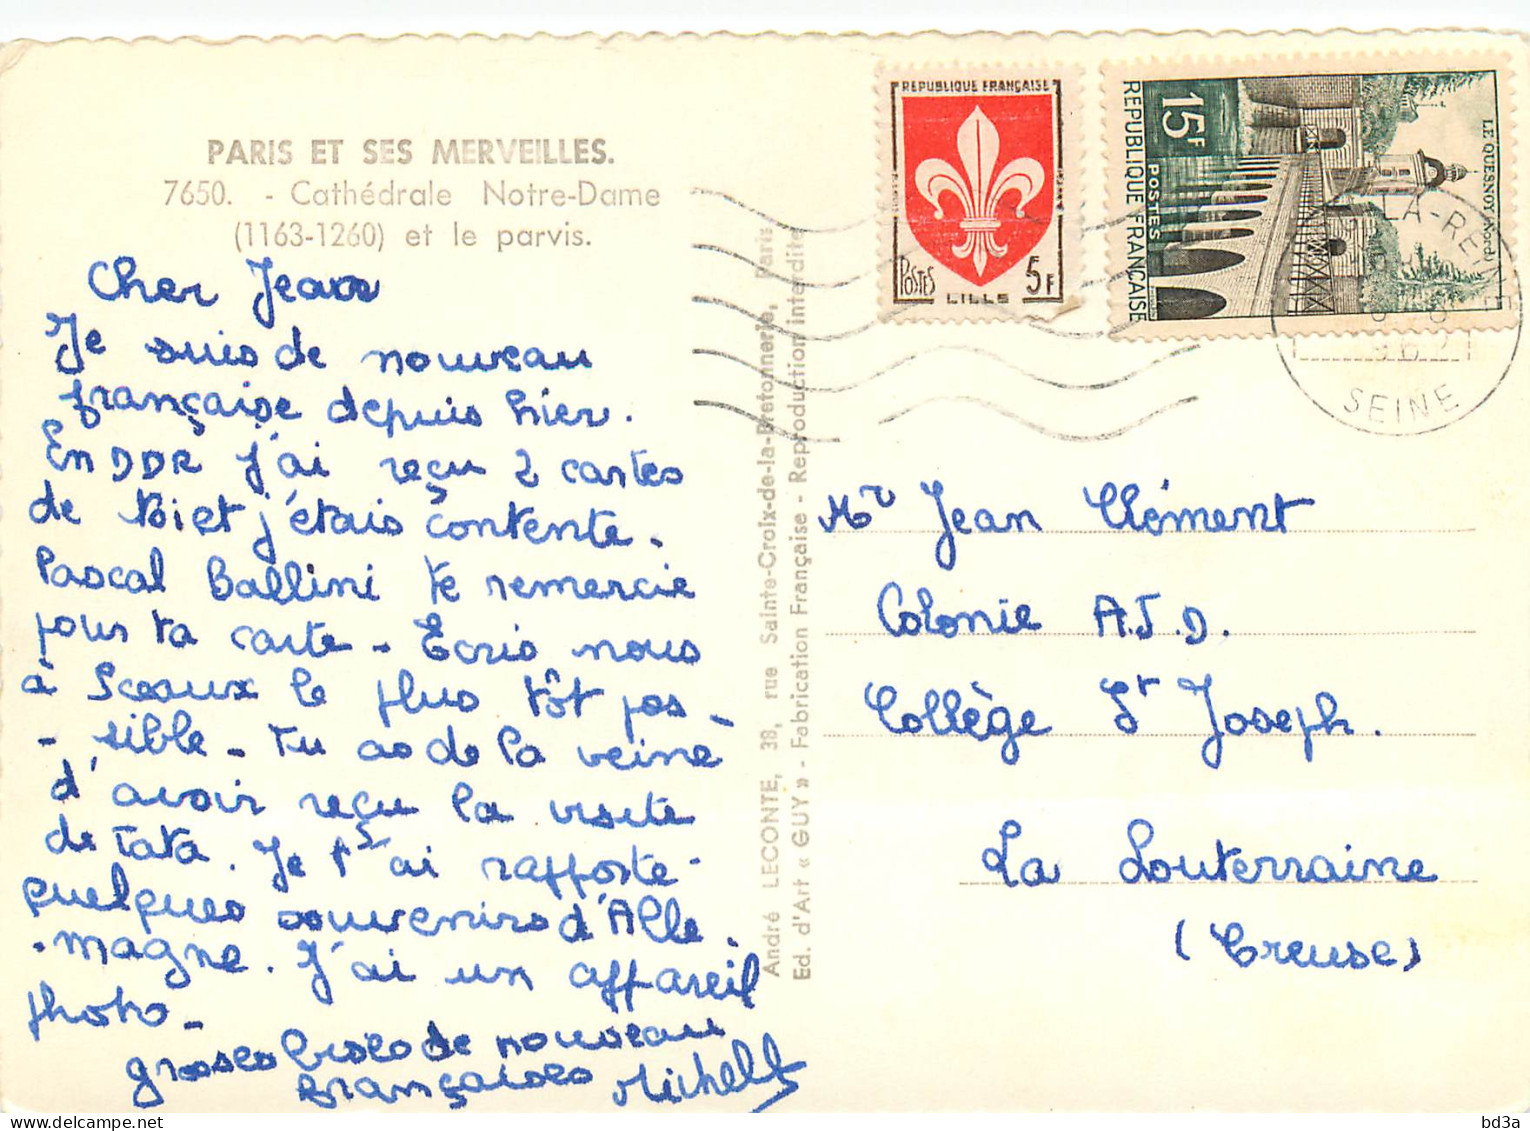 PARIS ET SES MERVEILLES.
7650. - Cathédrale Notre-Dame
(1163-1260) et le parvis.
Cher Jean
Je suis de nouveau
française depuis hier.
En DDR j'ai reçu 2 cartes
de toi et j'étais contente.
Pascal Ballini te remercie
pour ta carte - Ecris nous
à Sceaux le plus tôt pos -
- sible - Tu as de la veine
d'avoir reçu la visite
de Tata. Je t'ai rapporté
quelques souvenirs d'Alle -
- magne. J'ai un appareil
photo -
grosses bises de nouveau
françaises
André LECONTE, 38, rue Sainte-Croix-de-la-Bretonnerie, Paris
Ed. d'Art « GUY » - Fabrication Française - Reproduction interdite
REPUBLIQUE FRANÇAISE
POSTES
5F
LILLE
15F
POSTES
REPUBLIQUE FRANÇAISE
LE QUESNOY (Nord)
LA-REINE
SEINE
Mr Jean Clément
Colonie A.J.D.
Collège St Joseph.
La Souterraine
(Creuse)
bd3a